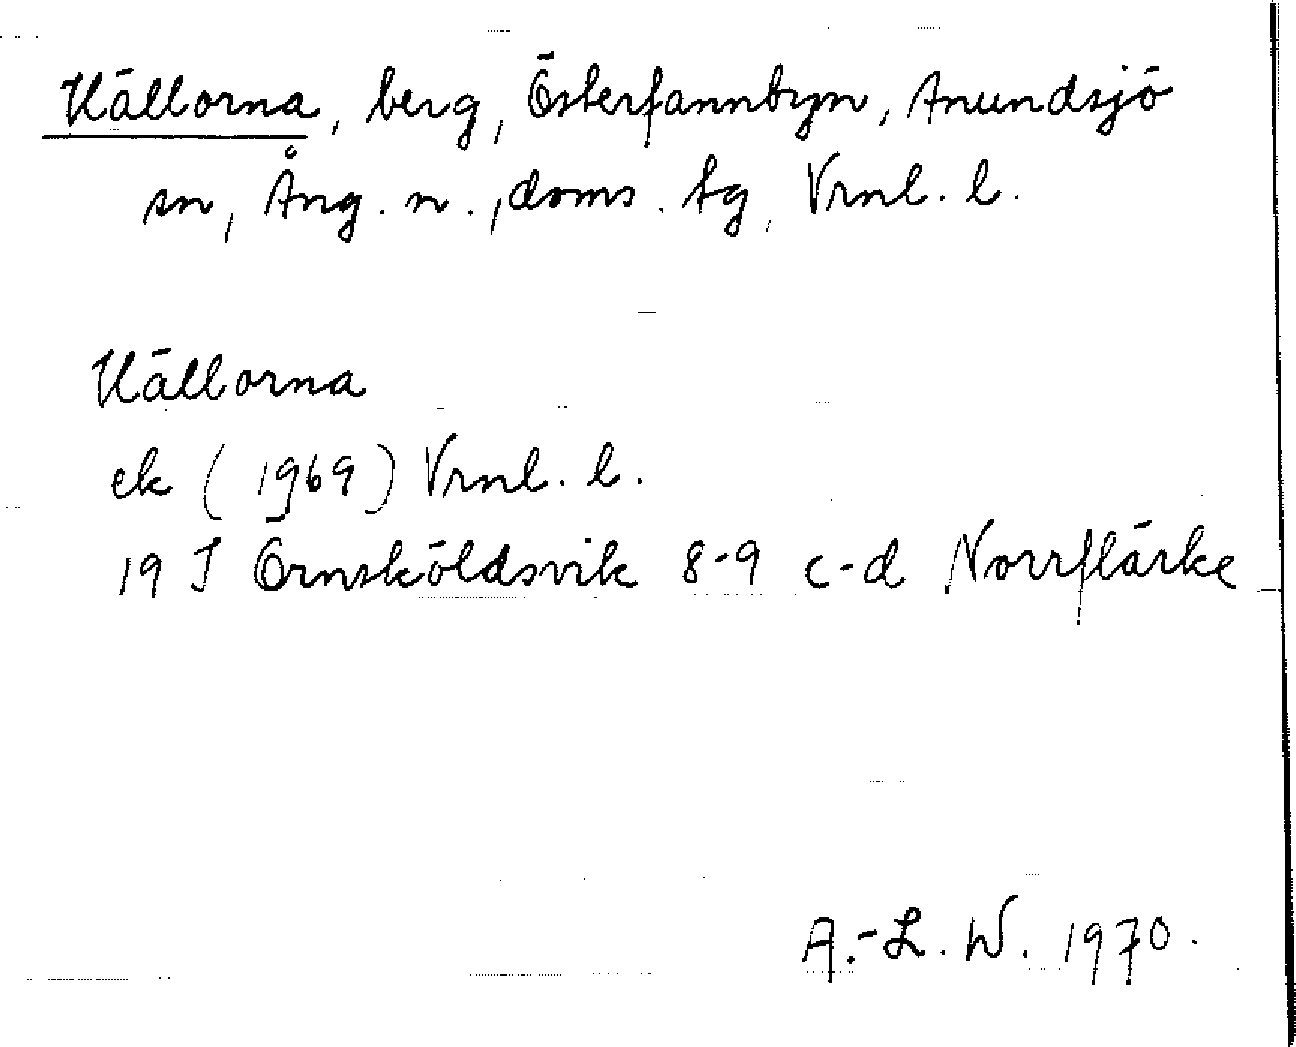 Källorna, berg, Österfannbyn, Anundsjö
sn, Ång. n., doms. tg, Vrnl. l.
Källorna
ek (1969) Vrnl. l.
19 J Örnsköldsvik 8-9 c-d Norrflärke
A.-L. W. 1970.